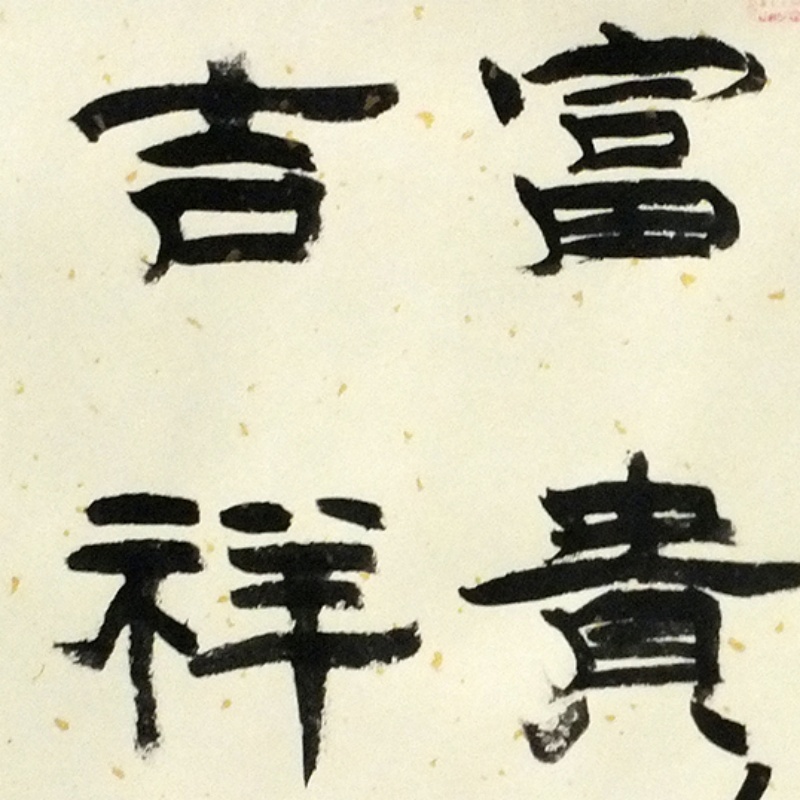 富貴
吉祥